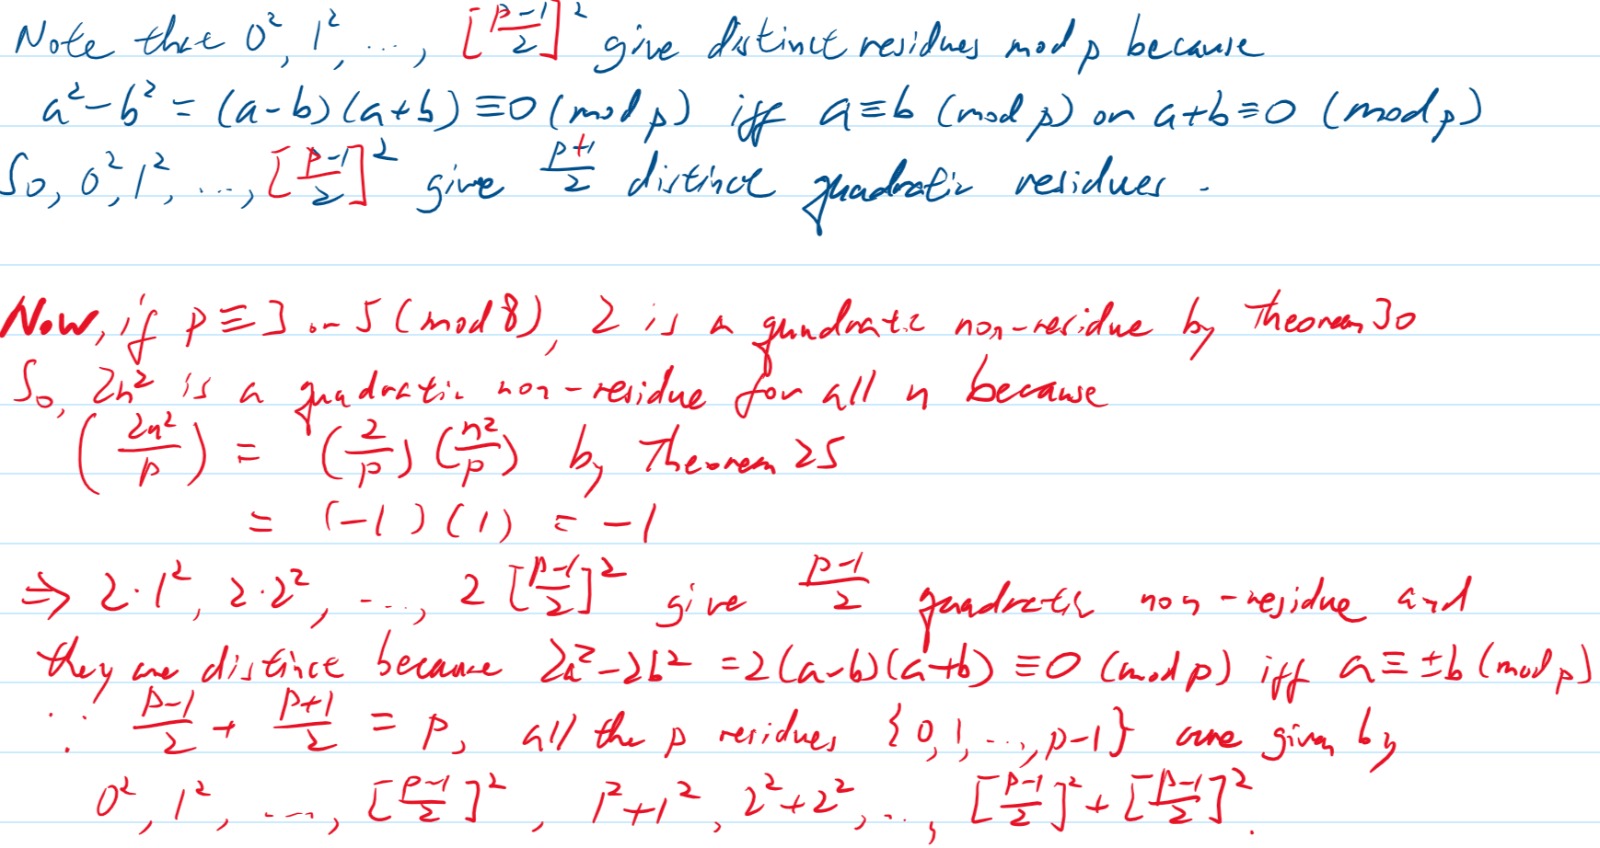 Note that 0², 1², ..., [(p-1)/2]² give distinct residues mod p because
a² - b² = (a-b)(a+b) ≡ 0 (mod p) iff a ≡ b (mod p) or a+b ≡ 0 (mod p)
So, 0², 1², ..., [(p-1)/2]² give (p+1)/2 distinct quadratic residues.
Now, if p ≡ 3 or 5 (mod 8), 2 is a quadratic non-residue by Theorem 30
So, 2n² is a quadratic non-residue for all n because
(2n²/p) = (2/p)(n²/p) by Theorem 25
= (-1)(1) = -1
⇒ 2·1², 2·2², ..., 2[(p-1)/2]² give (p-1)/2 quadratic non-residue and
they are distinct because 2a² - 2b² = 2(a-b)(a+b) ≡ 0 (mod p) iff a ≡ ±b (mod p)
∵ (p-1)/2 + (p+1)/2 = p, all the p residues {0, 1, ..., p-1} are given by
0², 1², ..., [(p-1)/2]², 1²+1², 2²+2², ..., [(p-1)/2]² + [(p-1)/2]².